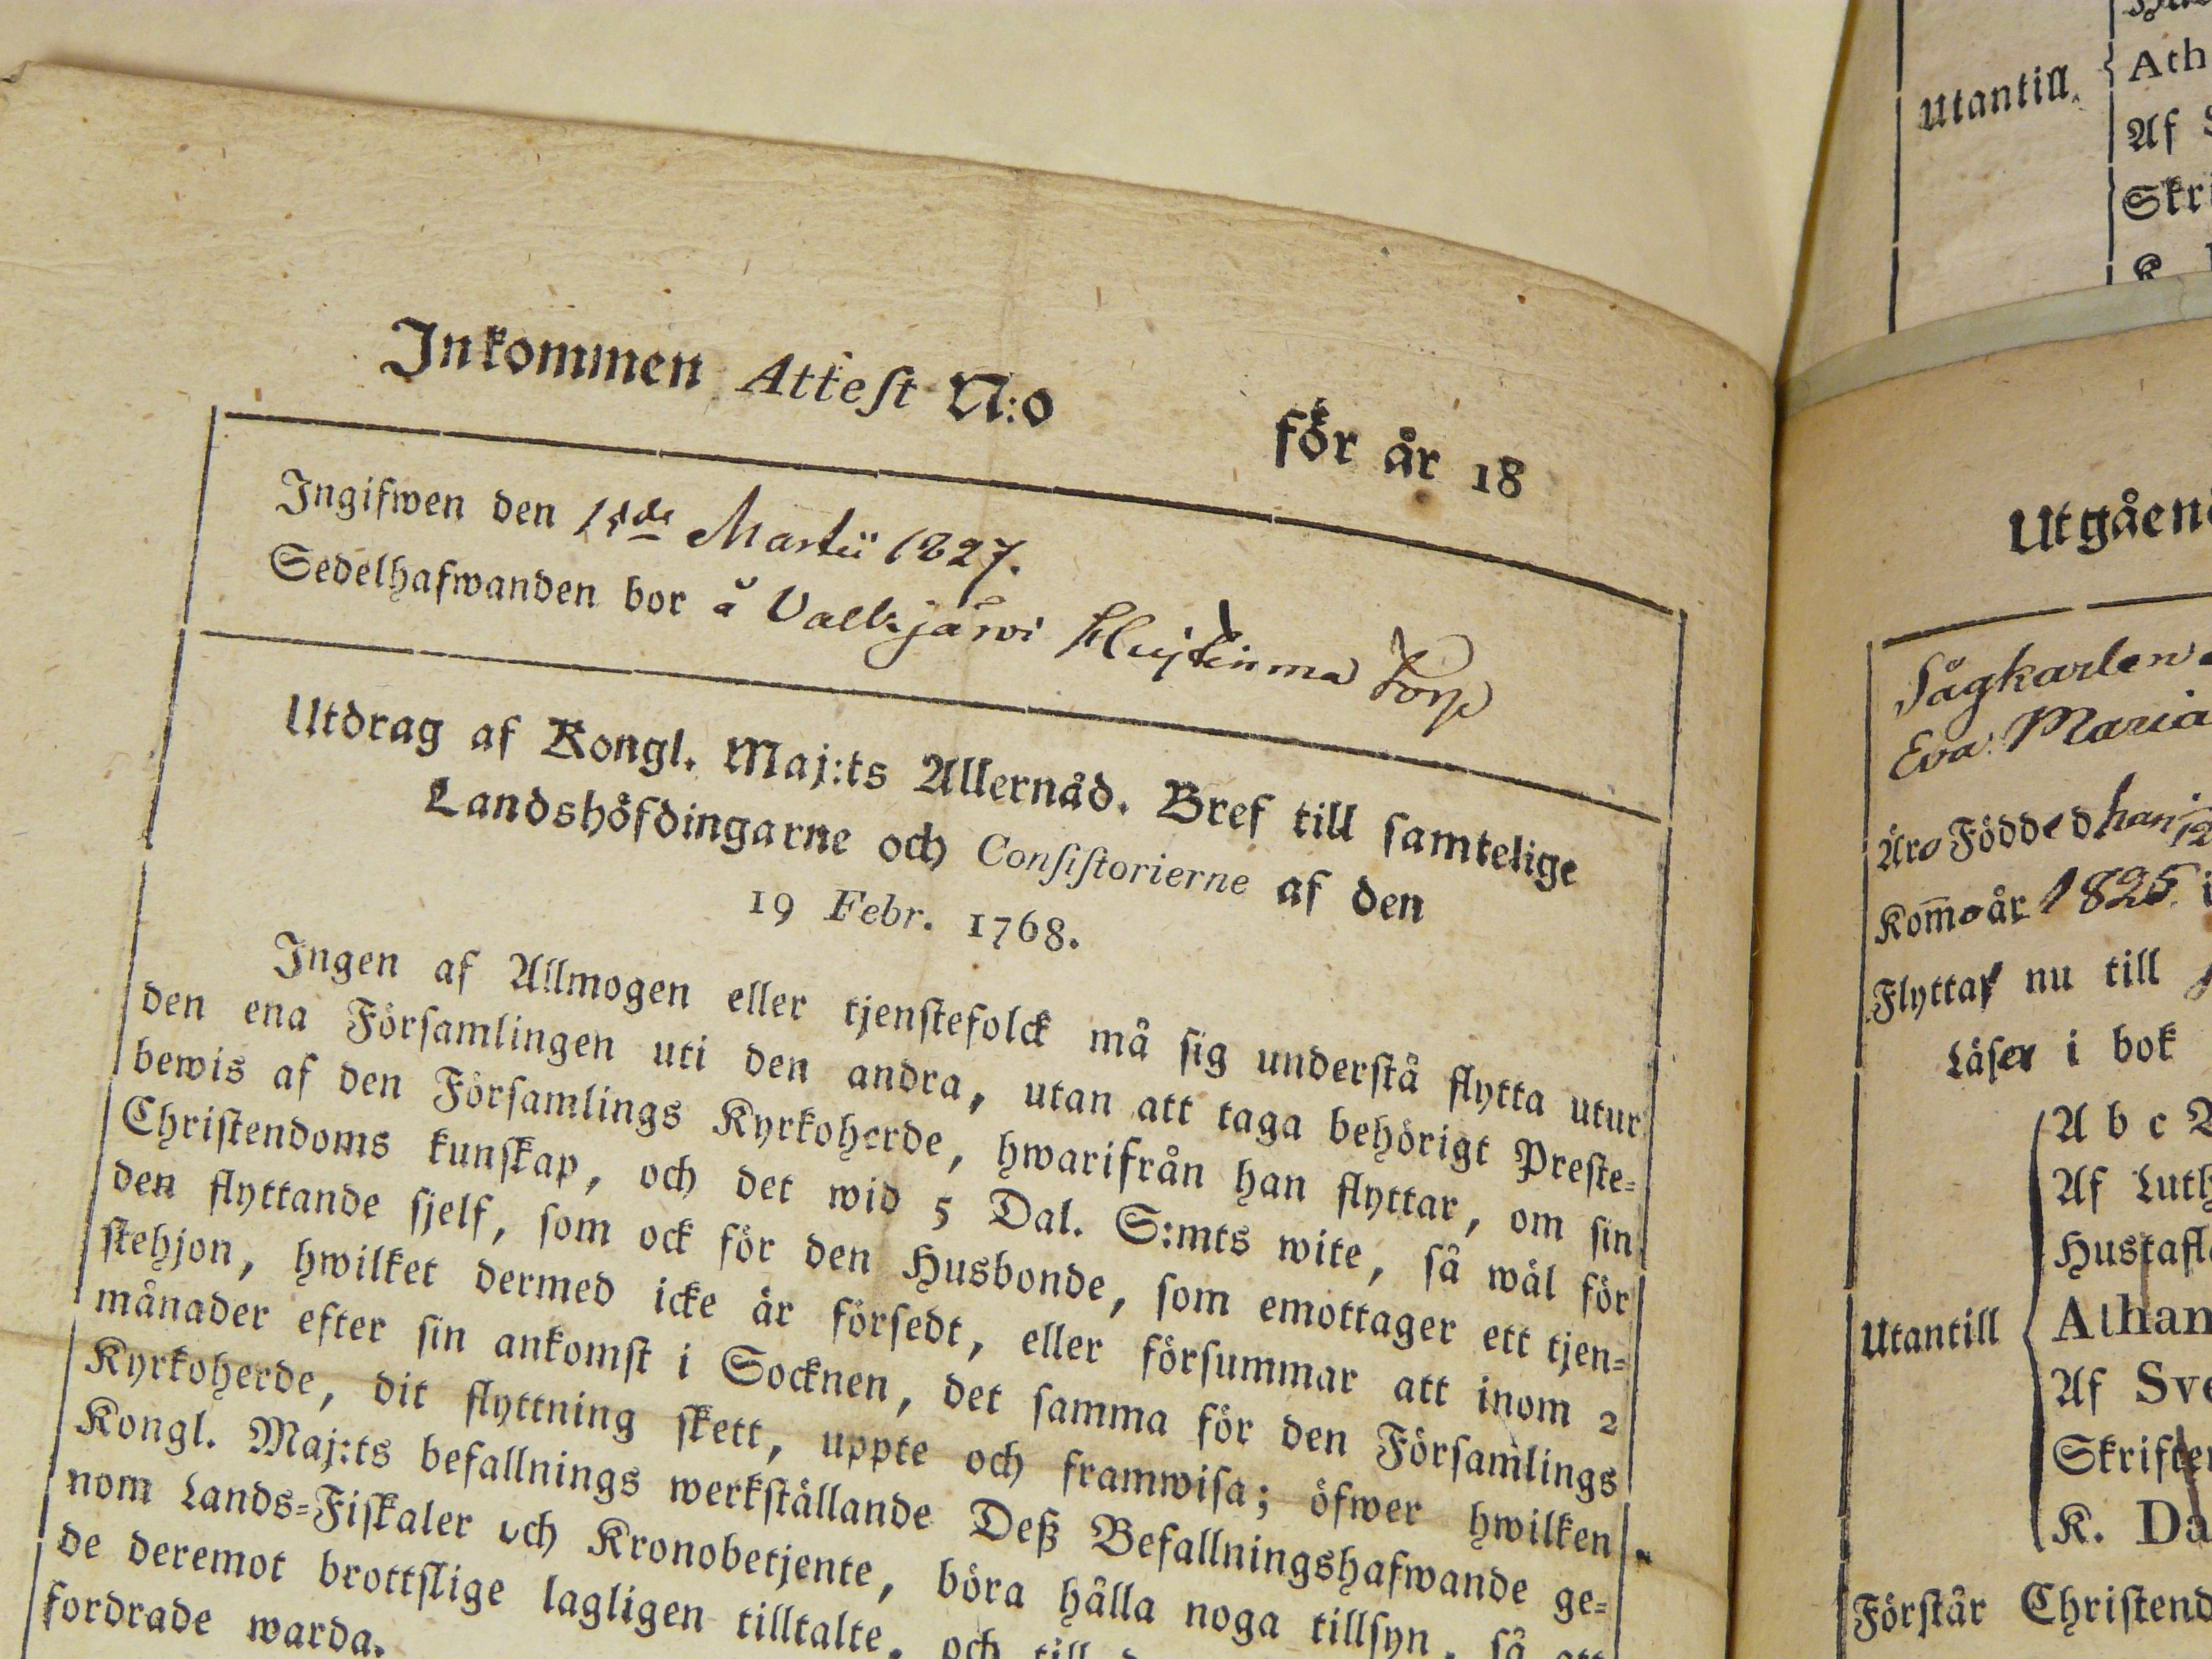 Inkommen Attest N:o för år 18
Ingifwen den Martii 1827.
Sedelhafwanden bor å Torp
Utdrag af Kongl. Maj:ts Allernåd. Bref till samtelige
Landshöfdingarne och Consistorierne af den
19 Febr. 1768.
Ingen af Allmogen eller tjenstefolck må sig understå flytta utur
den ena Församlingen uti den andra, utan att taga behörigt Preste-
bewis af den Församlings Kyrkoherde, hwarifrån han flyttar, om sin
Christendoms kunskap, och det wid 5 Dal. S:mts wite, så wäl för
den flyttande sjelf, som ock för den Husbonde, som emottager ett tjen-
stehjon, hwilket dermed icke är försedt, eller försummar att inom 2
månader efter sin ankomst i Socknen, det samma för den Församlings
Kyrkoherde, dit flyttning skett, uppte och framwisa; öfwer hwilken
Kongl. Maj:ts befallnings werkställande Deß Befallningshafwande ge-
nom Lands-Fiskaler och Kronobetjente, böra hålla noga tillsyn, så att
de deremot brottslige lagligen tilltalte, och till
fordrade warda.
Utantill.
Ath
Af
Skri
K
Utgåen
Sågkarlen
Eva Maria
Äro Födde d han
Kom̄o år 1825 i
Flytta nu till
Läser i bok
A b c
Af Luth
Hustafl
Utantill Athan
Af Sve
Skriften
K. Da
Förstår Christend